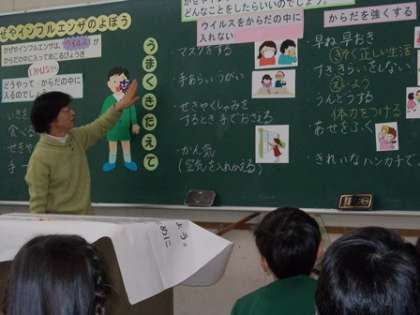 ぜやインフルエンザのよぼう
かぜやインフルエンザは、ウイルスが
からだの中に入っておこるびょうき
どうやって からだの中に
入るのでしょう
うまくきたえて
どんなことをしたらいいのでしょう。
ウイルスをからだの中に
入れない
・マスクをする
・手あらい うがい
・せきやくしゃみを
するとき手でおさえる
・かん気
(空気を入れかえる)
からだを強くする
・早ね 早おき
きそく正しい生活
・すききらいをしない
・うんどうする
体力をつける
・あせをふく
・きれいなハンカチで